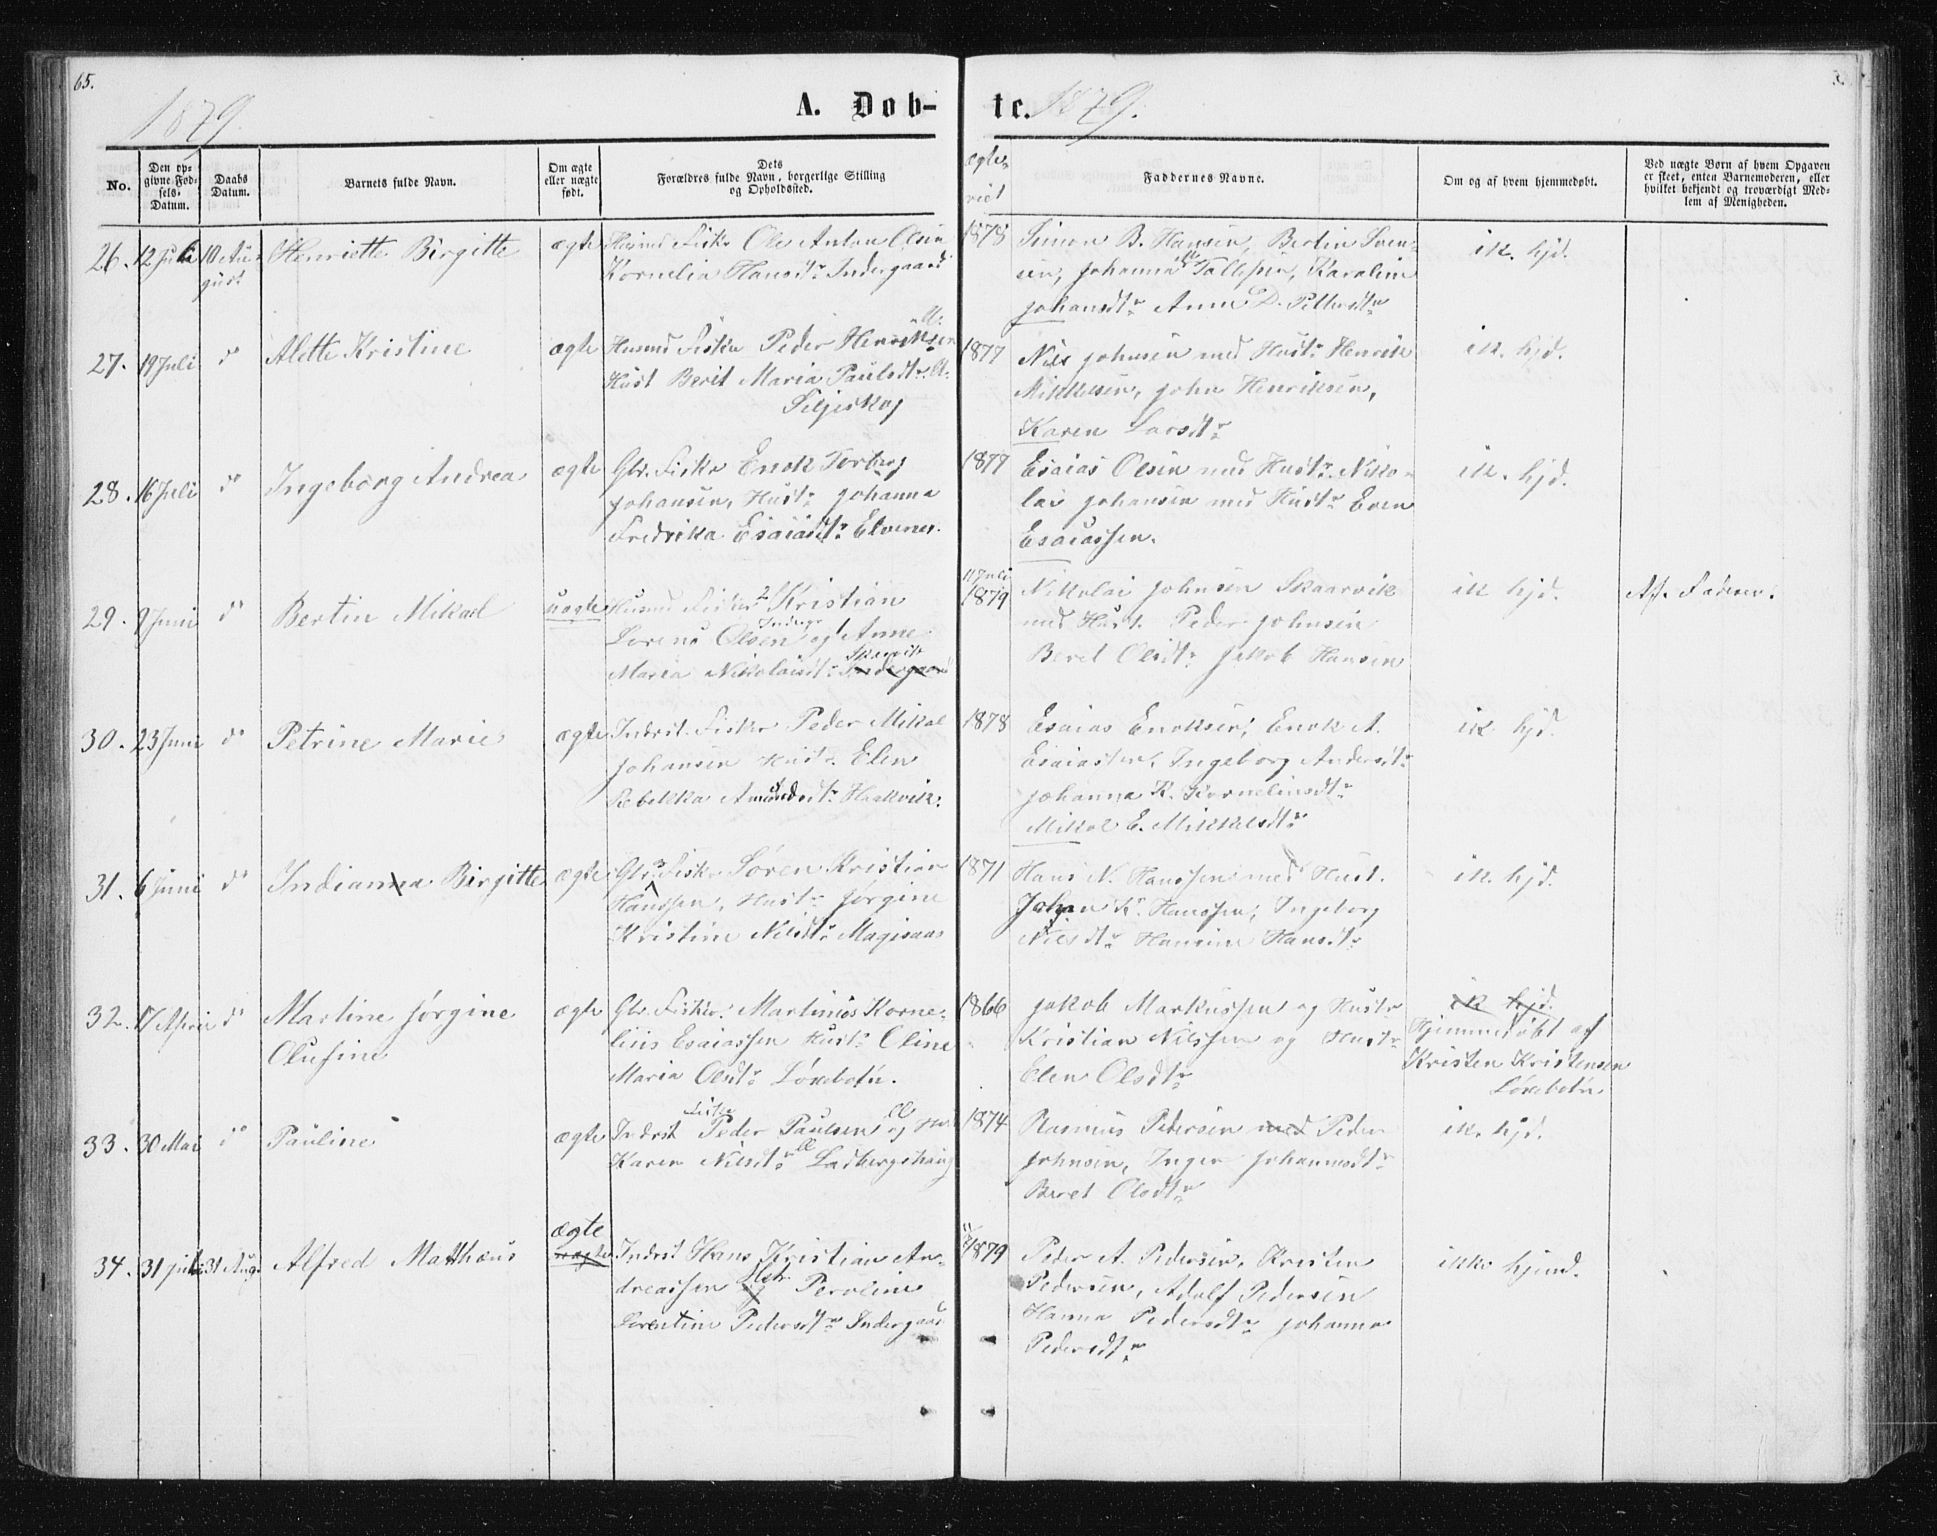 65.
1879.
A. Dob-
te. 1879.
No.
Den op-
givne Fød-
sels-
Datum.
Daabs
Datum.
Barnets fulde Navn.
Om ægte
eller uægte
født.
Dets
Forældres fulde Navn, borgerlige Stilling
og Opholdssted.
ægte
viet
Faddernes Navne.
Om og af hvem hjemmedøbt.
Ved uægte Børn af hvem Opgaven
er skeet, enten Barnemoderen, eller
hvilket bekjendt og troværdigt Med-
lem af Menigheden.
26. 12 Juli 10 Au-
gust
Henriette Birgitte
ægte
Husmd Fisker Ole Anton Olsen
Kornelia Hansdtr Indergaard
1878
Simon B. Hansen, Bertin Sven-
sen, Johanna Tollefsen, Karoline
Johansdtr Anne D. Pettersdtr
ik. hjd.
27. 19 Juli do
Alette Kristine
ægte
Husmd Fisker Peder Henriksen
Hust Berit Maria Paulsdtr
Siljeskog
1877
Nils Johnsen med Hustr Henrik
Mikkelsen, John Henriksen,
Karen Larsdtr
ik. hjd.
28. 16 Juli do
Ingeborg Andrea
ægte
Gbr. Fisker Enok Torberg
Johansen, Hustr Johanna
Fredrika Esaiasdtr Elvenes.
1877
Esaias Olsen med Hustr Niko-
lai Johansen med Hustr Even
Esaiassen.
ik. hjd.
29. 9 Juni do
Bertin Mikael
uægte
Husmd Fisker Kristian
Lorens Olsen og Anne
Maria Nikolaisdtr Indergaard
Skarvik
11 Juli
1879
Nikolai Johnsen Skaarvik
med Hust. Peder Johnsen
Beret Olsdtr Jakob Hansen
ik hjd.
Af Faderen.
30. 23 Juni do
Petrine Marie
ægte
Indrst. Fisker Peder Mikal
Johansen Hustr Elen
Rebekka Amundsdtr Haakvik.
1878
Esaias Enoksen, Enok A.
Esaiassen, Ingeborg Andersdtr
Johanna K. Korneliusdtr
Mikal E. Mikkelsdtr
ik hjd.
31. 6 Juni do
Indianna Birgitte
ægte
Gbr. Fisker Søren Kristian
Hanssen, Hustr Jørgine
Kristine Nilsdtr Magisaas
1871
Hans N. Hanssen med Hust.
Johan K. Hanssen, Ingeborg
Nilsdtr Hansine Hansdtr
ik. hjd.
32. 17 April do
Martine Jørgine
Olufine
ægte
Gbr. Fisker Martinius Korne-
lius Esaiassen Hustr Oline
Maria Olsdtr Løvebotn.
1866
Jakob Markussen og Hustr
Kristian Nilssen og Hustr
Elen Olsdtr
ik hjd.
Hjemmedøbt af
Kristen Kristensen
Løvebotn
33. 30 Mai do
Pauline
ægte
Indrst Fisker Peder Paulsen og Hust
Karen Nilsdtr Ladbergshaug
1874
Rasmus Pedersen med Peder
Johnsen, Inger Johannesdtr
Beret Olsdtr
ik. hjd.
34. 31 Juli 31 Aug.
Alfred Mathæus
ægte
uægte
Indrst Hans Kristian An-
dreassen og Hstr Peroline
Lorentine Pedersdtr Indergaard
1879
Peder A. Pedersen, Kristen
Pedersen, Adolf Pedersen
Hanna Pedersdtr Johanna
Pedersdtr
ikke hjemd.